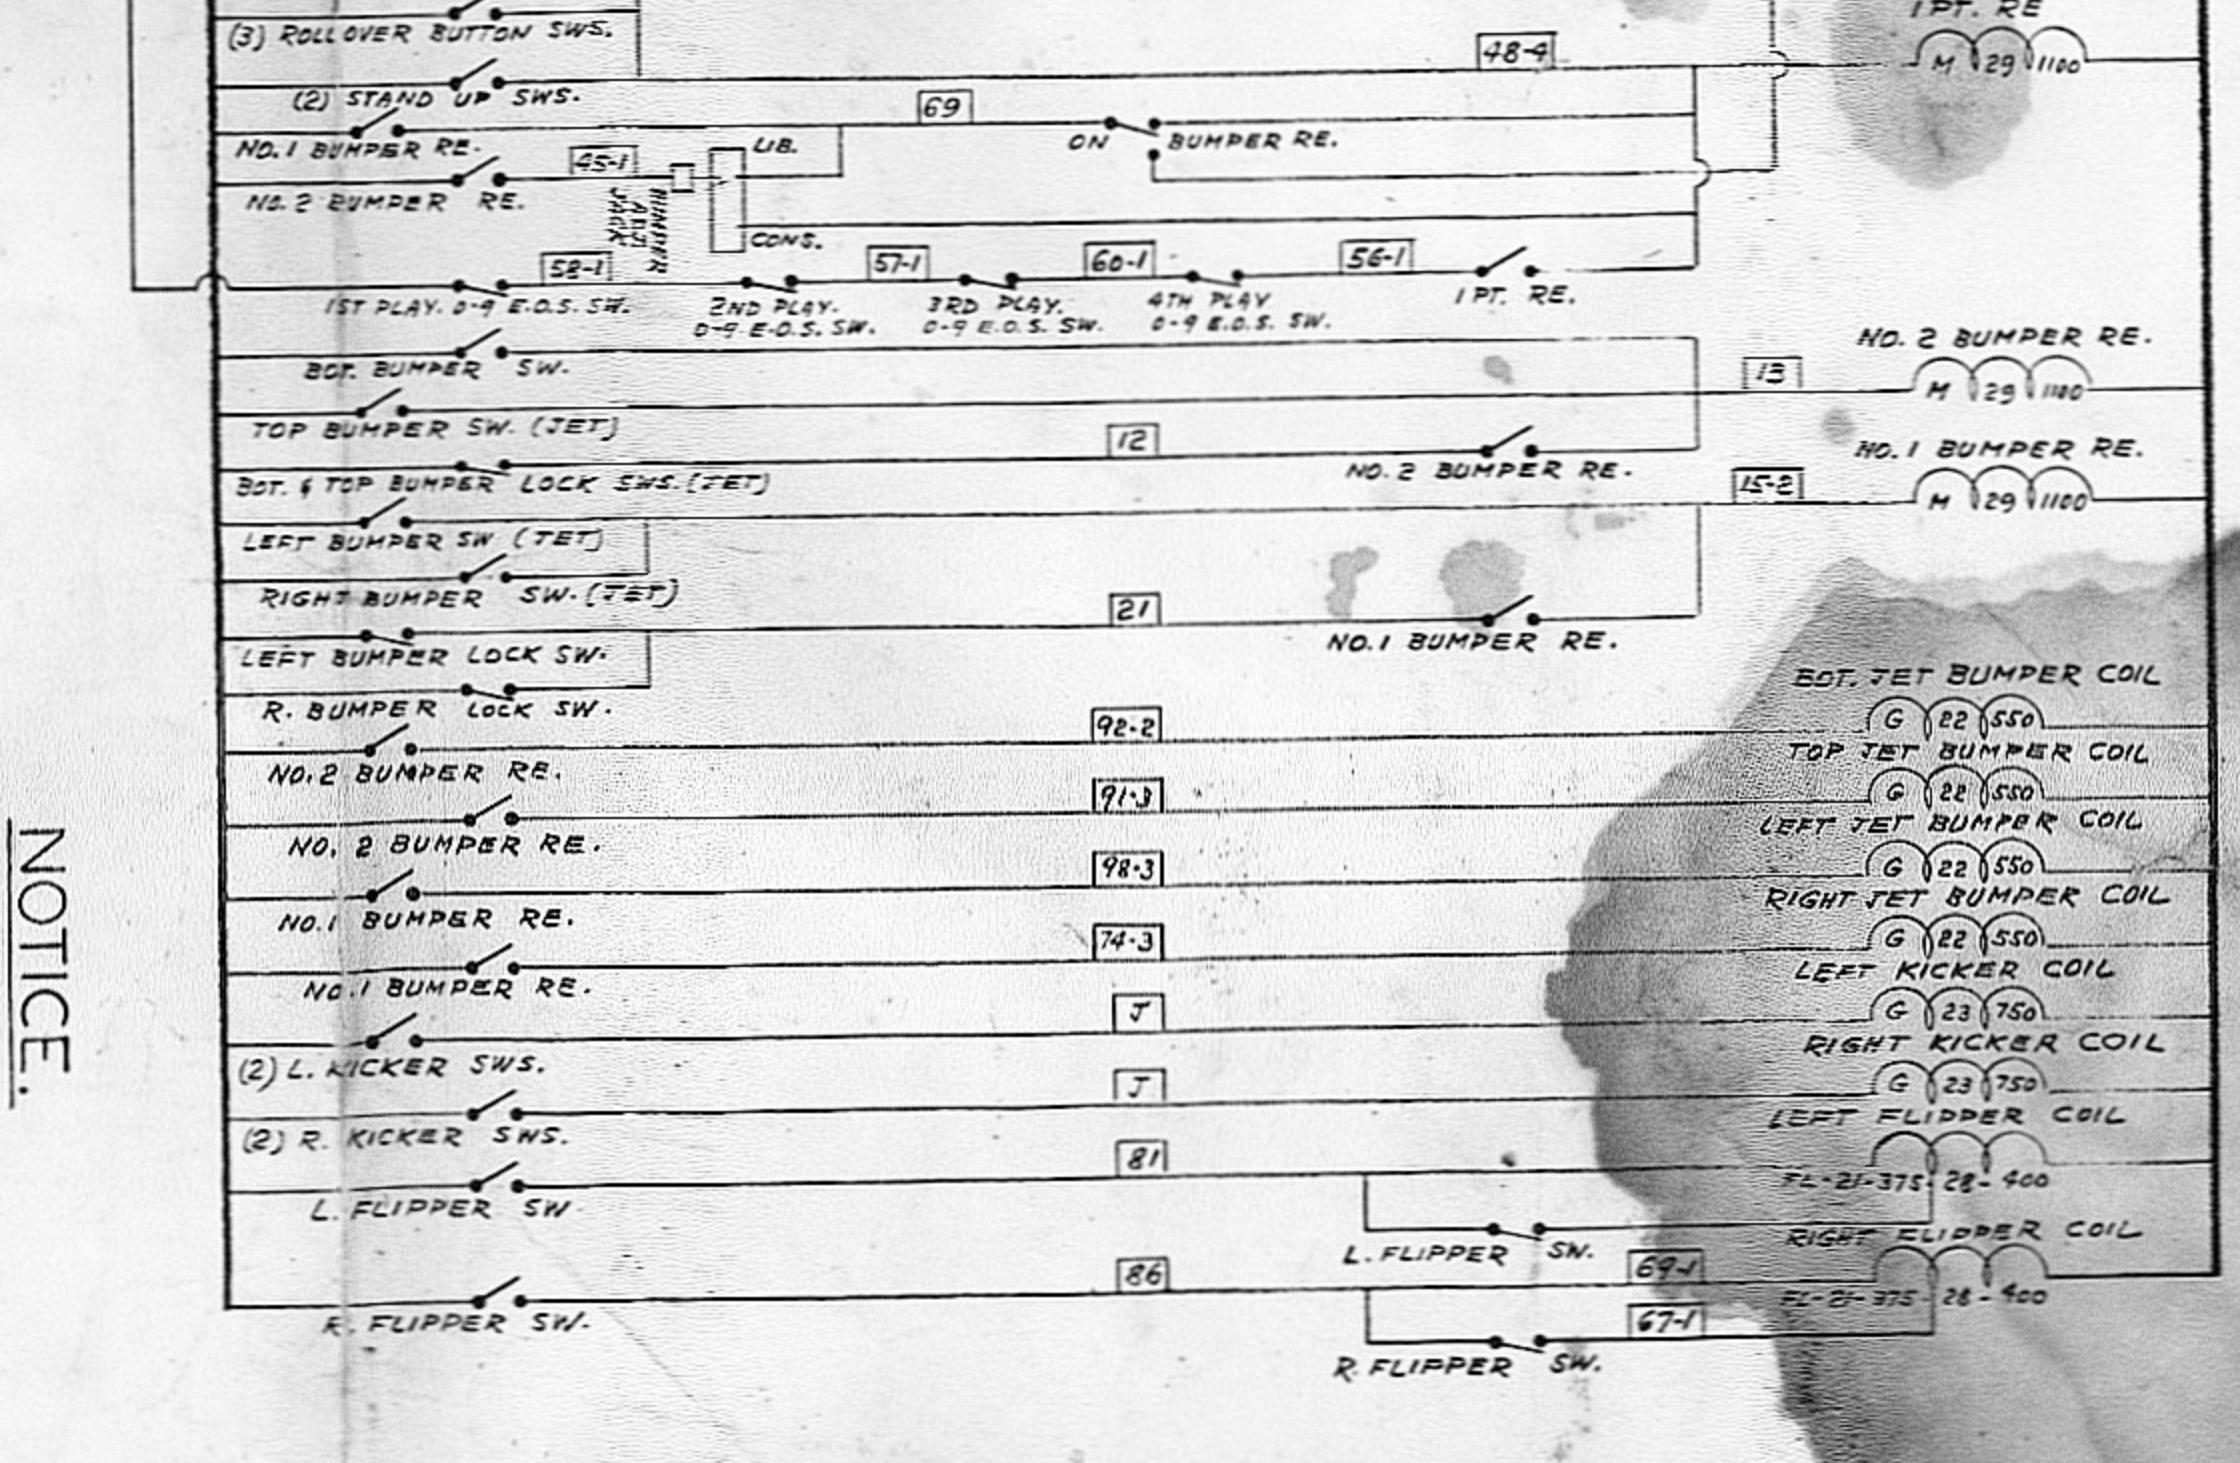 1 PT. RE
(3) ROLLOVER BUTTON SWS.
48-4
M 29 1100
(2) STAND UP SWS.
69
NO. 1 BUMPER RE.
LIB.
ON BUMPER RE.
45-1
NO. 2 BUMPER RE.
BUMPER
ADJ.
JACK
CONS.
58-1
57-1
60-1
56-1
1ST PLAY. 0-9 E.O.S. SW.
2ND PLAY.
0-9 E.O.S. SW.
3RD PLAY.
0-9 E.O.S. SW.
4TH PLAY
0-9 E.O.S. SW.
1 PT. RE.
NO. 2 BUMPER RE.
BOT. BUMPER SW.
13
M 29 1100
TOP BUMPER SW. (JET)
12
NO. 1 BUMPER RE.
NO. 2 BUMPER RE.
BOT. & TOP BUMPER LOCK SWS. (JET)
15-2
M 29 1100
LEFT BUMPER SW (JET)
RIGHT BUMPER SW. (JET)
21
NO. 1 BUMPER RE.
LEFT BUMPER LOCK SW.
BOT. JET BUMPER COIL
R. BUMPER LOCK SW.
92-2
G 22 550
NO. 2 BUMPER RE.
TOP JET BUMPER COIL
91-3
G 22 550
NO. 2 BUMPER RE.
LEFT JET BUMPER COIL
98-3
G 22 550
NO. 1 BUMPER RE.
RIGHT JET BUMPER COIL
74-3
G 22 550
NO. 1 BUMPER RE.
LEFT KICKER COIL
J
G 23 750
(2) L. KICKER SWS.
RIGHT KICKER COIL
J
G 23 750
(2) R. KICKER SWS.
LEFT FLIPPER COIL
81
FL-21-375-28-400
L. FLIPPER SW
L. FLIPPER SW.
RIGHT FLIPPER COIL
86
69-1
FL-21-375-28-400
R. FLIPPER SW.
67-1
R. FLIPPER SW.
NOTICE.